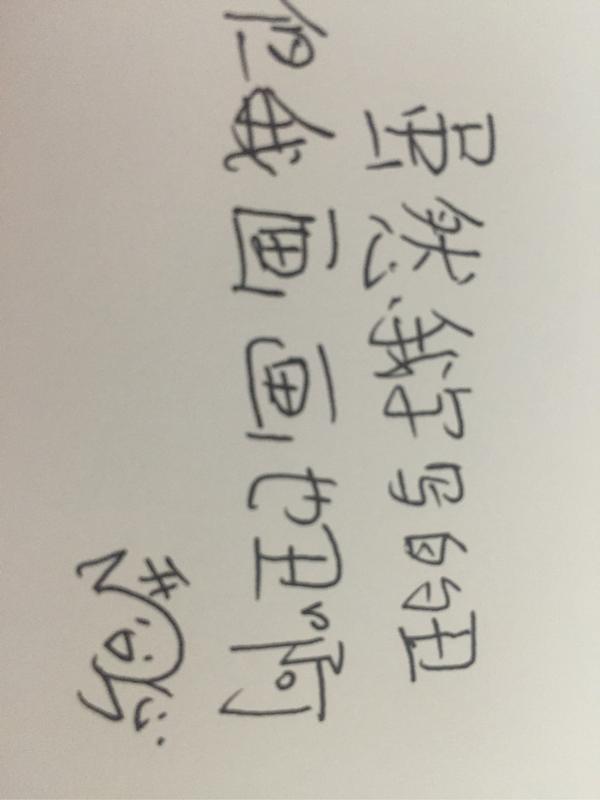 虽然我字写的丑
但我画画也丑啊